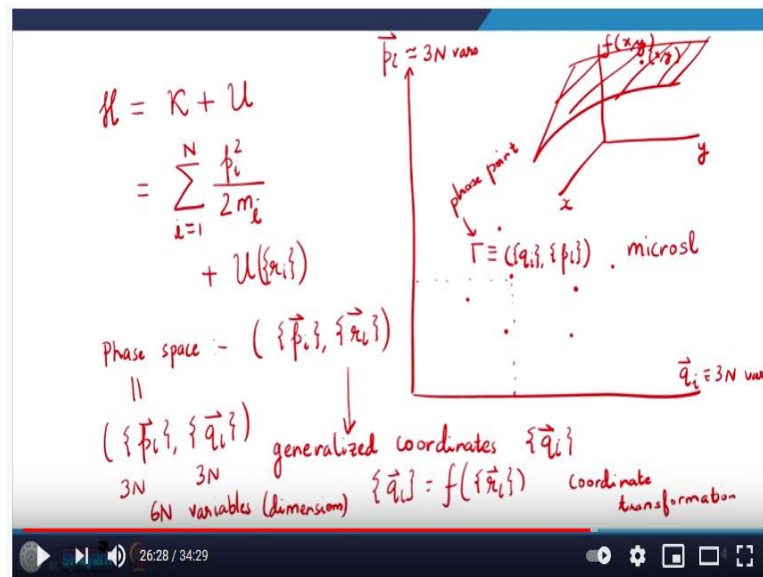 H = K + U
= ∑_{i=1}^{N} p_i^2 / 2m_i
+ U({r_i})
Phase space :- ({p⃗_i}, {r⃗_i})
||
({p⃗_i}, {q⃗_i})
3N 3N
6N variables (dimension)
generalized coordinates {q⃗_i}
{q⃗_i} = f({r⃗_i}) coordinate
transformation
p⃗_i ≈ 3N vars
f(x,y)
(x,y)
y
x
phase point
Γ ≡ ({q_i}, {p_i}) microsl
q⃗_i ≡ 3N var
26:28 / 34:29